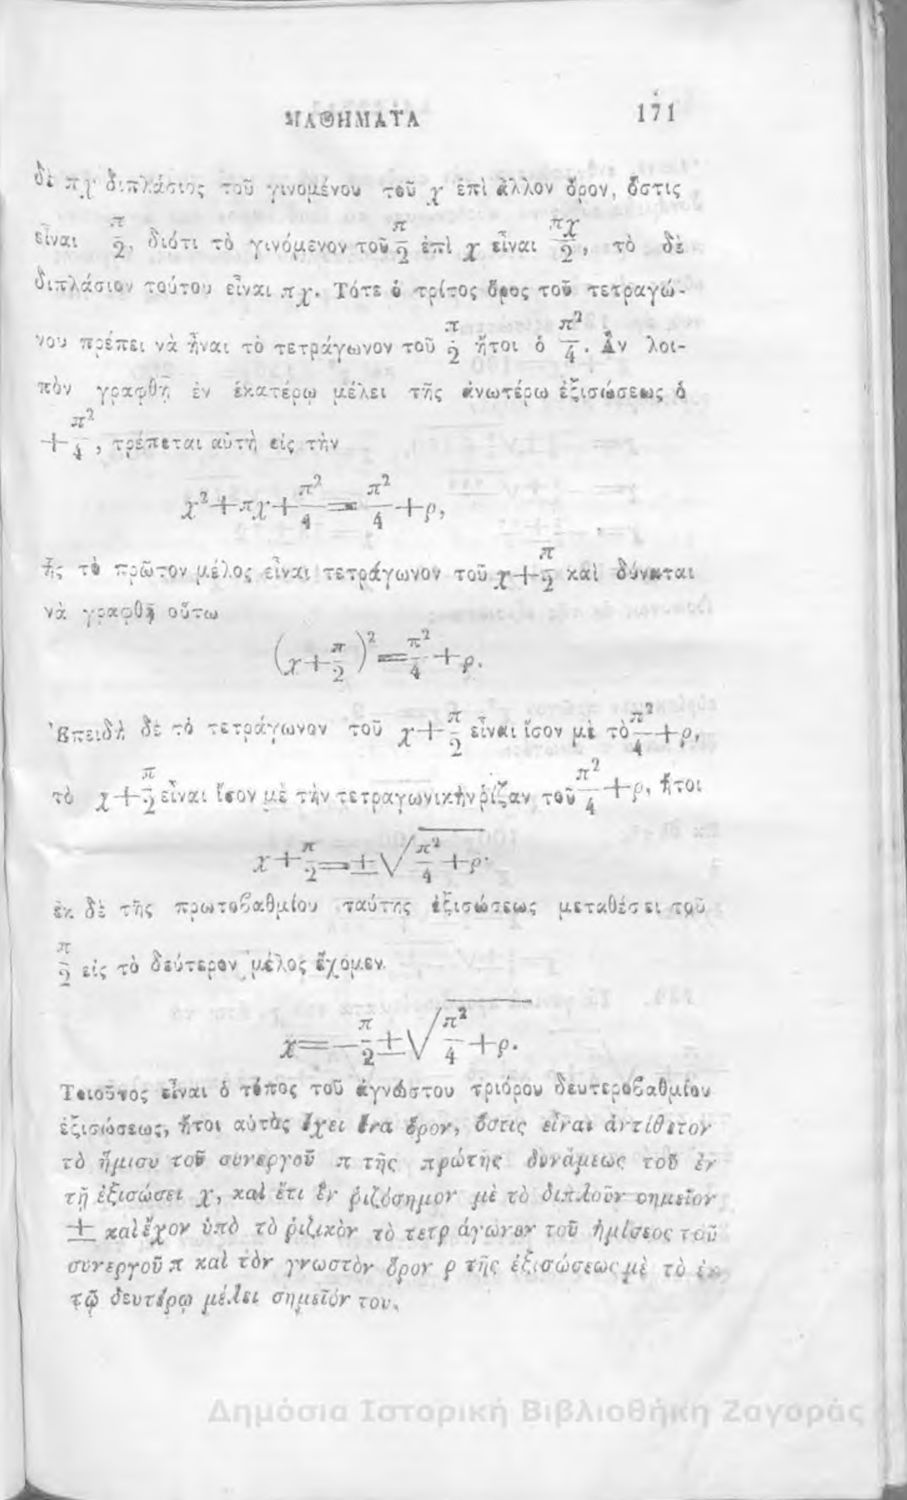 ΜΑΘΗΜΑΤΑ 171
δὲ πχ διπλάσιος τοῦ γινομένου τοῦ χ ἐπὶ ἄλλον ὅρον, ὅστις
εἶναι π/2, διότι τὸ γινόμενον τοῦ π/2 ἐπὶ χ εἶναι πχ/2, τὸ δὲ
διπλάσιον τούτου εἶναι πχ. Τότε ὁ τρίτος ὅρος τοῦ τετραγώ-
νου πρέπει νὰ ἦναι τὸ τετράγωνον τοῦ π/2 ἤτοι ὁ π²/4. Ἂν λοι-
πὸν γραφθῇ ἐν ἑκατέρῳ μέλει τῆς ἀνωτέρω ἐξισώσεως ὁ
+π²/4, τρέπεται αὐτὴ εἰς τὴν
χ²+πχ+π²/4=π²/4+ρ,
ἧς τὸ πρῶτον μέλος εἶναι τετράγωνον τοῦ χ+π/2 καὶ δύναται
νὰ γραφθῇ οὕτω
(χ+π/2)²=π²/4+ρ.
Ἐπειδὴ δὲ τὸ τετράγωνον τοῦ χ+π/2 εἶναι ἴσον μὲ τὸ π²/4+ρ,
τὸ χ+π/2 εἶναι ἴσον μὲ τὴν τετραγωνικὴν ῥίζαν τοῦ π²/4+ρ, ἤτοι
χ+π/2=±√π²/4+ρ·
ἐκ δὲ τῆς πρωτοβαθμίου ταύτης ἐξισώσεως μεταθέσει τοῦ
π/2 εἰς τὸ δεύτερον μέλος ἔχομεν
χ=—π/2±√π²/4+ρ.
Τοιοῦτος εἶναι ὁ τύπος τοῦ ἀγνώστου τριόρου δευτεροβαθμίου
ἐξισώσεως, ἤτοι αὐτὸς ἔχει ἕνα ὅρον, ὅστις εἶναι ἀντίθετον
τὸ ἥμισυ τοῦ συνεργοῦ π τῆς πρώτης δυνάμεως τοῦ ἐν
τῇ ἐξισώσει χ, καὶ ἔτι ἓν ῥιζόσημον μὲ τὸ διπλοῦν σημεῖον
± καὶ ἔχον ὑπὸ τὸ ῥιζικὸν τὸ τετράγωνον τοῦ ἡμίσεος τοῦ
συνεργοῦ π καὶ τὸν γνωστὸν ὅρον ρ τῆς ἐξισώσεως μὲ τὸ ἐν
τῷ δευτέρῳ μέλει σημεῖόν του.
Δημόσια Ιστορική Βιβλιοθήκη Ζαγοράς